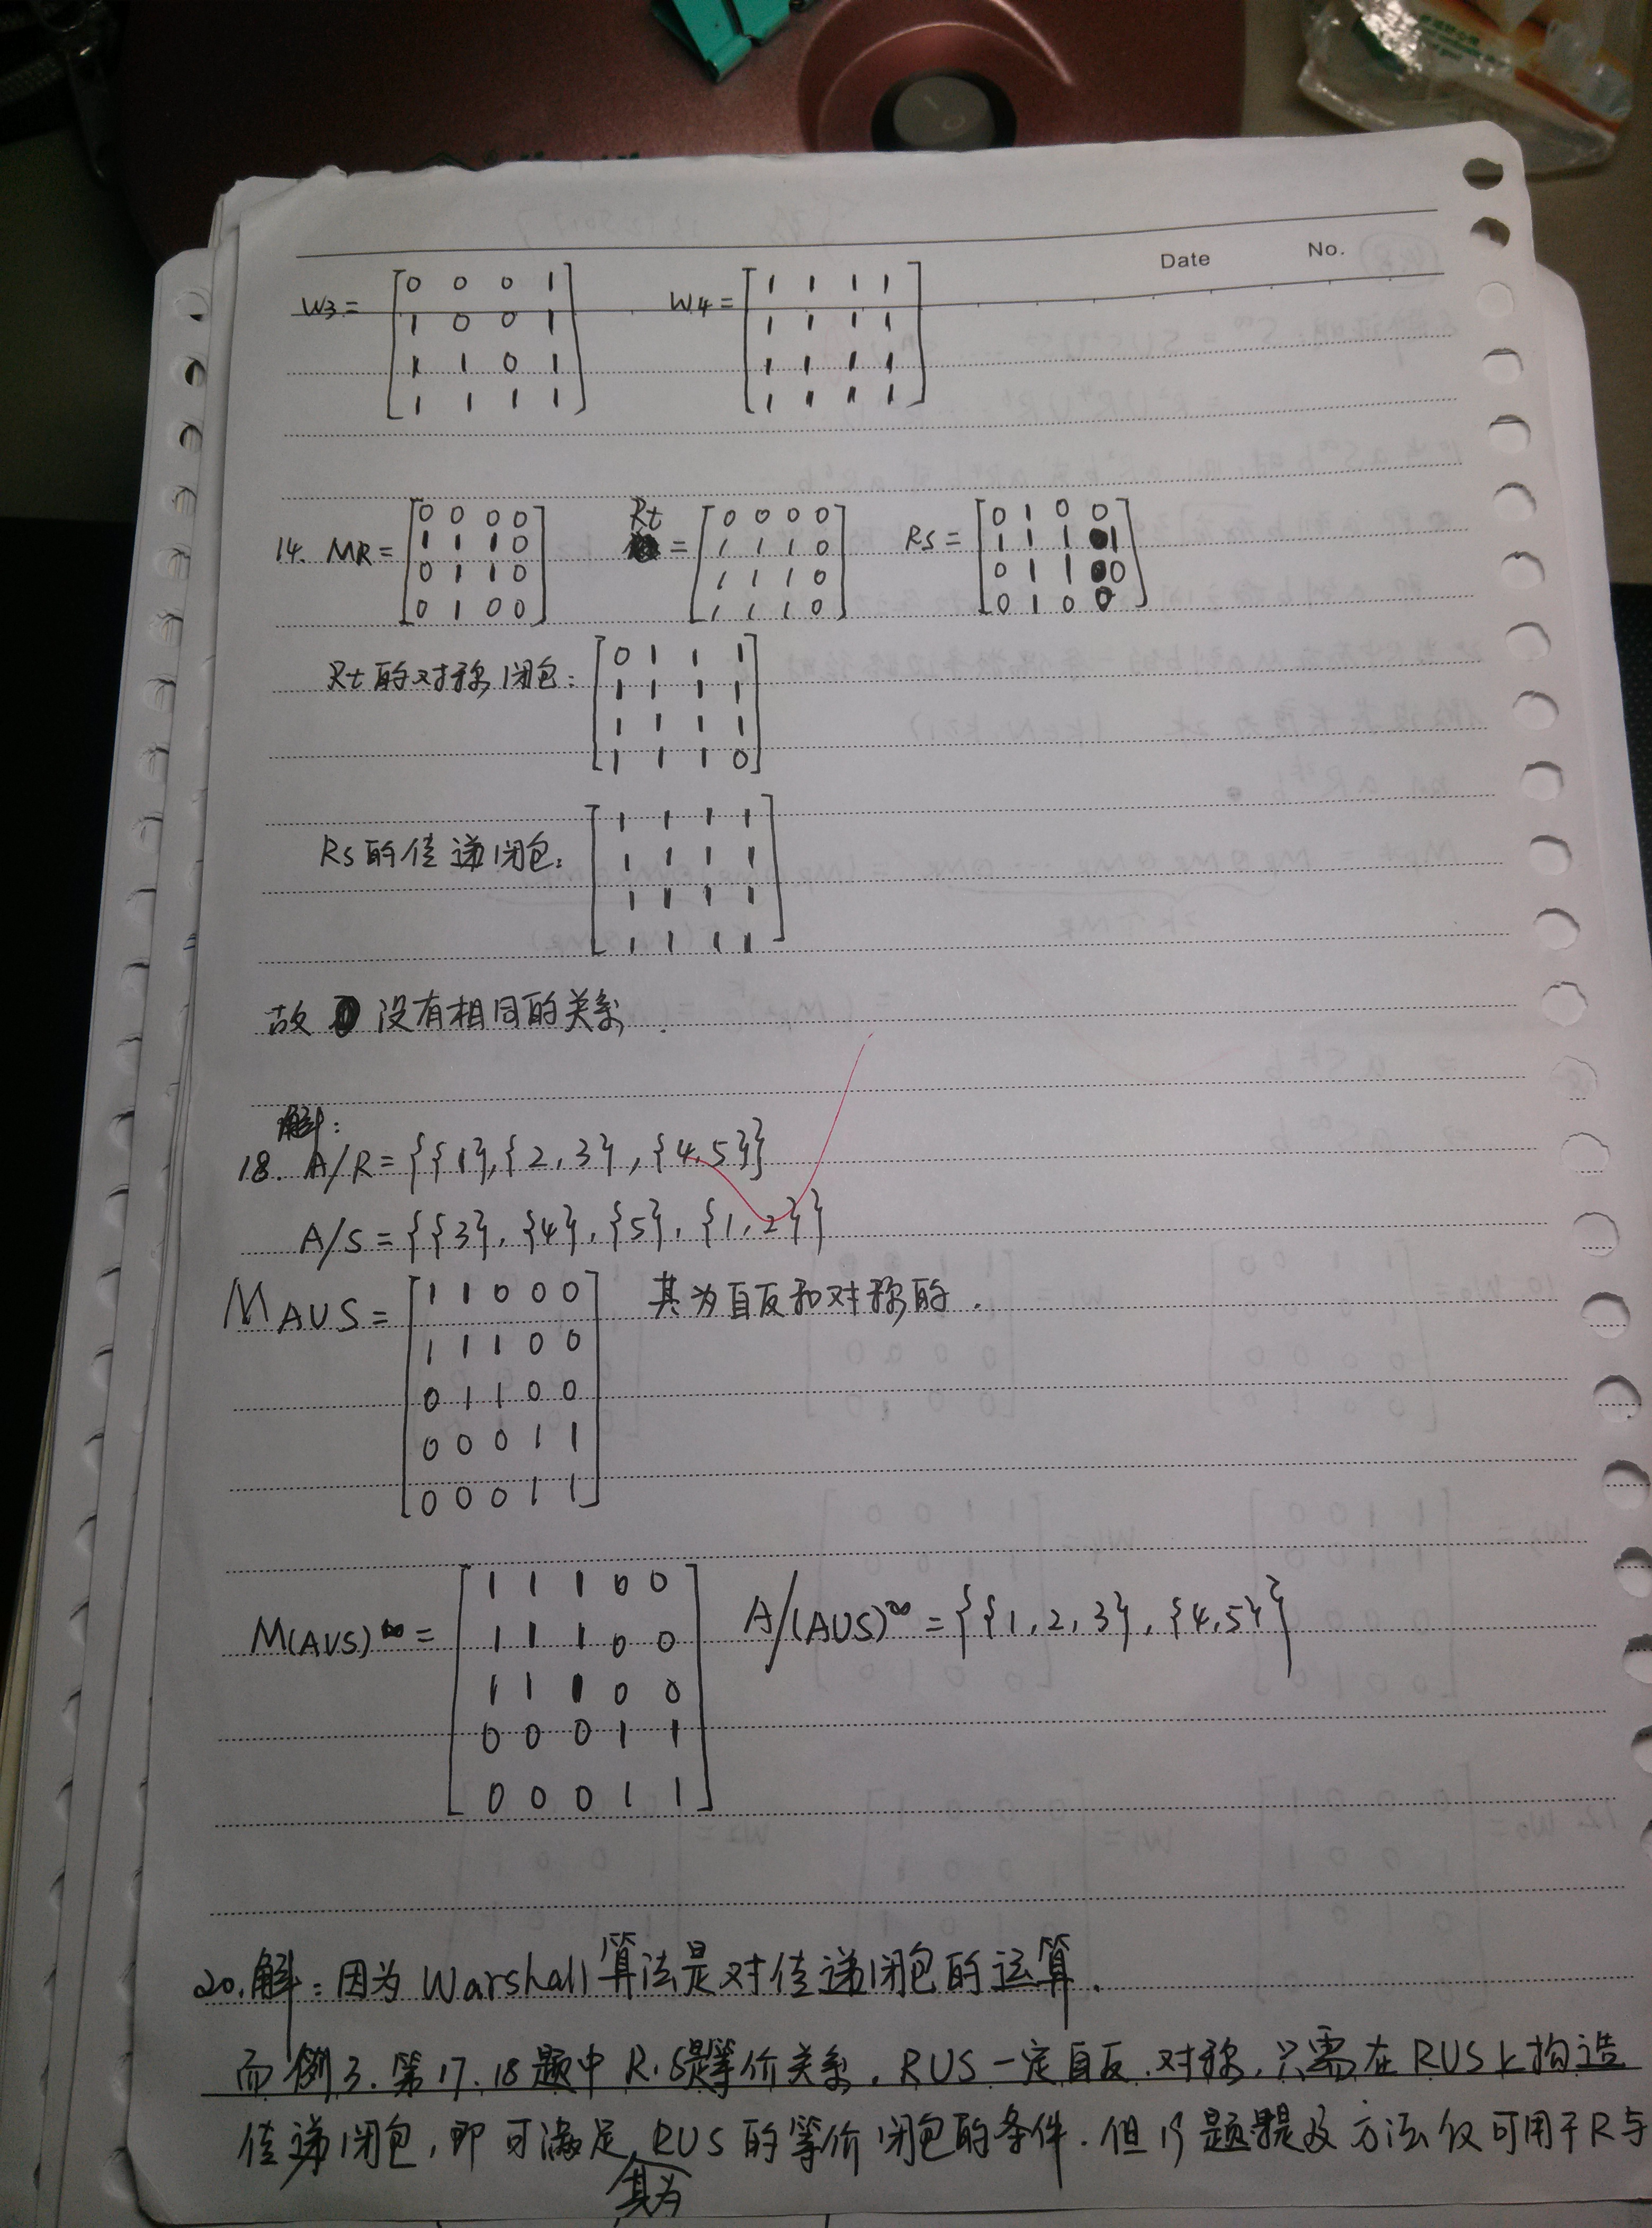 Date No.
W3 = [0 0 0 1 W4 = [1 1 1 1
1 0 0 1 1 1 1 1
1 1 0 1 1 1 1 1
1 1 1 1] 1 1 1 1]
14. MR = [0 0 0 0 Rt = [0 0 0 0 Rs = [0 1 0 0
1 1 1 0 1 1 1 0 1 1 1 1
0 1 1 0 1 1 1 0 0 1 1 0
0 1 0 0] 1 1 1 0] 0 1 0 0]
Rt的对称闭包: [0 1 1 1
1 1 1 1
1 1 1 1
1 1 1 0]
Rs的传递闭包: [1 1 1 1
1 1 1 1
1 1 1 1
1 1 1 1]
故 没有相同的关系.
解:
18. A/R = {{1},{2,3},{4,5}}
A/S = {{3},{4},{5},{1,2}}
MAUS = [1 1 0 0 0 其为自反和对称的.
1 1 1 0 0
0 1 1 0 0
0 0 0 1 1
0 0 0 1 1]
M(AUS)∞ = [1 1 1 0 0 A/(AUS)∞ = {{1,2,3},{4,5}}
1 1 1 0 0
1 1 1 0 0
0 0 0 1 1
0 0 0 1 1]
20.解:因为Warshall算法是对传递闭包的运算.
而例3.第17.18题中R.S是等价关系,RUS一定自反.对称,只需在RUS上构造
传递闭包,即可满足其为RUS的等价闭包的条件.但 题 提及方法仅可用于R与